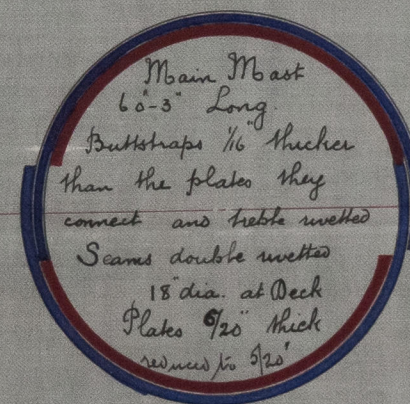 Main Mast
60'-3" Long.
Buttstraps 1/16" thicker
than the plates they
connect and treble rivetted
Seams double rivetted
18" dia. at Deck
Plates 6/20" thick
reduced to 5/20"